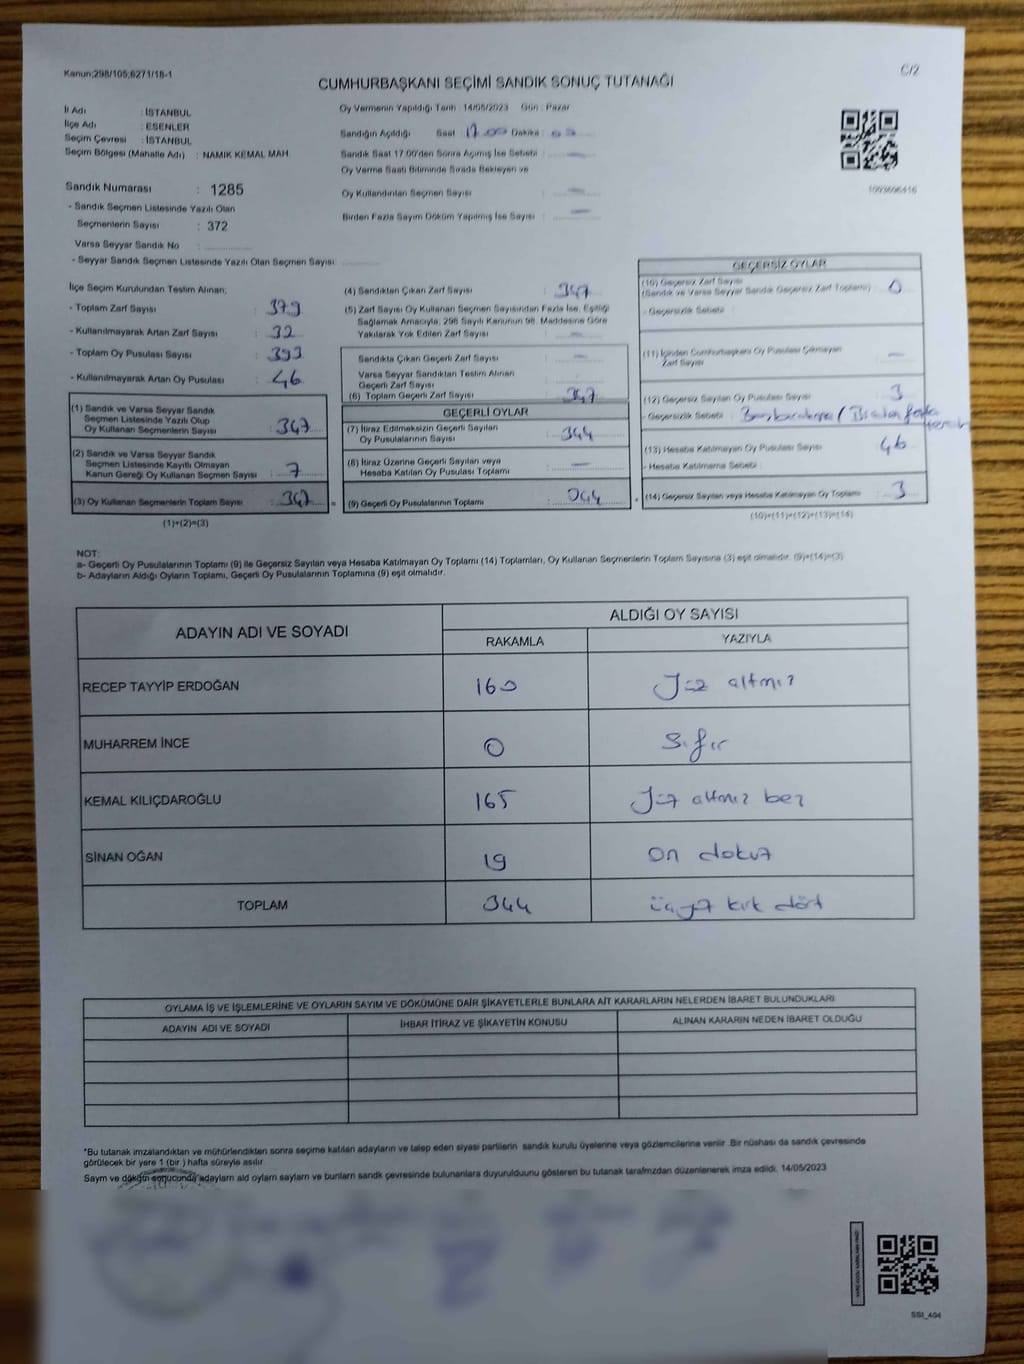 Kanun;298/105;6271/18-1
C/2
CUMHURBAŞKANI SEÇİMİ SANDIK SONUÇ TUTANAĞI
İl Adı : İSTANBUL
İlçe Adı : ESENLER
Seçim Çevresi : İSTANBUL
Seçim Bölgesi (Mahalle Adı) : NAMIK KEMAL MAH.
Sandık Numarası : 1285
- Sandık Seçmen Listesinde Yazılı Olan
Seçmenlerin Sayısı : 372
Varsa Seyyar Sandık No :
- Seyyar Sandık Seçmen Listesinde Yazılı Olan Seçmen Sayısı:
Oy Vermenin Yapıldığı Tarih : 14/05/2023 Gün : Pazar
Sandığın Açıldığı Saat : 17.00 Dakika :
Sandık Saat 17:00'den Sonra Açılmış İse Sebebi :
Oy Verme Saati Bitiminde Sırada Bekleyen ve
Oy Kullandırılan Seçmen Sayısı :
Birden Fazla Sayım Döküm Yapılmış İse Sayısı :
1093696416
İlçe Seçim Kurulundan Teslim Alınan;
- Toplam Zarf Sayısı : 379
- Kullanılmayarak Artan Zarf Sayısı : 32
- Toplam Oy Pusulası Sayısı : 393
- Kullanılmayarak Artan Oy Pusulası : 46
(1) Sandık ve Varsa Seyyar Sandık
Seçmen Listesinde Yazılı Olup
Oy Kullanan Seçmenlerin Sayısı : 347
(2) Sandık ve Varsa Seyyar Sandık
Seçmen Listesinde Kayıtlı Olmayan
Kanun Gereği Oy Kullanan Seçmen Sayısı : 7
(3) Oy Kullanan Seçmenlerin Toplam Sayısı : 347
(1)+(2)=(3)
(4) Sandıktan Çıkan Zarf Sayısı : 347
(5) Zarf Sayısı Oy Kullanan Seçmen Sayısından Fazla İse, Eşitliği
Sağlamak Amacıyla, 298 Sayılı Kanunun 98. Maddesine Göre
Yakılarak Yok Edilen Zarf Sayısı :
Sandıkta Çıkan Geçerli Zarf Sayısı :
Varsa Seyyar Sandıktan Teslim Alınan
Geçerli Zarf Sayısı :
(6) Toplam Geçerli Zarf Sayısı : 347
GEÇERLİ OYLAR
(7) İtiraz Edilmeksizin Geçerli Sayılan
Oy Pusulalarının Sayısı : 344
(8) İtiraz Üzerine Geçerli Sayılan veya
Hesaba Katılan Oy Pusulası Toplamı :
(9) Geçerli Oy Pusulalarının Toplamı : 344
GEÇERSİZ OYLAR
(10) Geçersiz Zarf Sayısı
(Sandık ve Varsa Seyyar Sandık Geçersiz Zarf Toplamı) : 0
- Geçersizlik Sebebi :
(11) İçinden Cumhurbaşkanı Oy Pusulası Çıkmayan
Zarf Sayısı
(12) Geçersiz Sayılan Oy Pusulası Sayısı : 3
- Geçersizlik Sebebi :
(13) Hesaba Katılmayan Oy Pusulası Sayısı : 46
- Hesaba Katılmama Sebebi :
(14) Geçersiz Sayılan veya Hesaba Katılmayan Oy Toplamı : 3
(10)+(11)+(12)+(13)=(14)
NOT:
a- Geçerli Oy Pusulalarının Toplamı (9) ile Geçersiz Sayılan veya Hesaba Katılmayan Oy Toplamı (14) Toplamları, Oy Kullanan Seçmenlerin Toplam Sayısına (3) eşit olmalıdır. (9)+(14)=(3)
b- Adayların Aldığı Oyların Toplamı, Geçerli Oy Pusulalarının Toplamına (9) eşit olmalıdır.
ADAYIN ADI VE SOYADI
ALDIĞI OY SAYISI
RAKAMLA YAZIYLA
RECEP TAYYİP ERDOĞAN 160 Yüz altmış
MUHARREM İNCE 0 Sıfır
KEMAL KILIÇDAROĞLU 165 Yüz altmış beş
SİNAN OĞAN 19 On dokuz
TOPLAM 344 üçyüz kırk dört
OYLAMA İŞ VE İŞLEMLERİNE VE OYLARIN SAYIM VE DÖKÜMÜNE DAİR ŞİKAYETLERLE BUNLARA AİT KARARLARIN NELERDEN İBARET BULUNDUKLARI
ADAYIN ADI VE SOYADI İHBAR İTİRAZ VE ŞİKAYETİN KONUSU ALINAN KARARIN NEDEN İBARET OLDUĞU
*Bu tutanak imzalandıktan ve mühürlendikten sonra seçime katılan adayların ve talep eden siyasi partilerin sandık kurulu üyelerine veya gözlemcilerine verilir .Bir nüshası da sandık çevresinde
görülecek bir yere 1 (bir ) hafta süreyle asılır
Saym ve döküm sonucunda adayların ald oyların sayları ve bunların sandık çevresinde bulunanlara duyurulduunu gösteren bu tutanak tarafmzdan düzenlenerek imza edildi. 14/05/2023
SSI_404